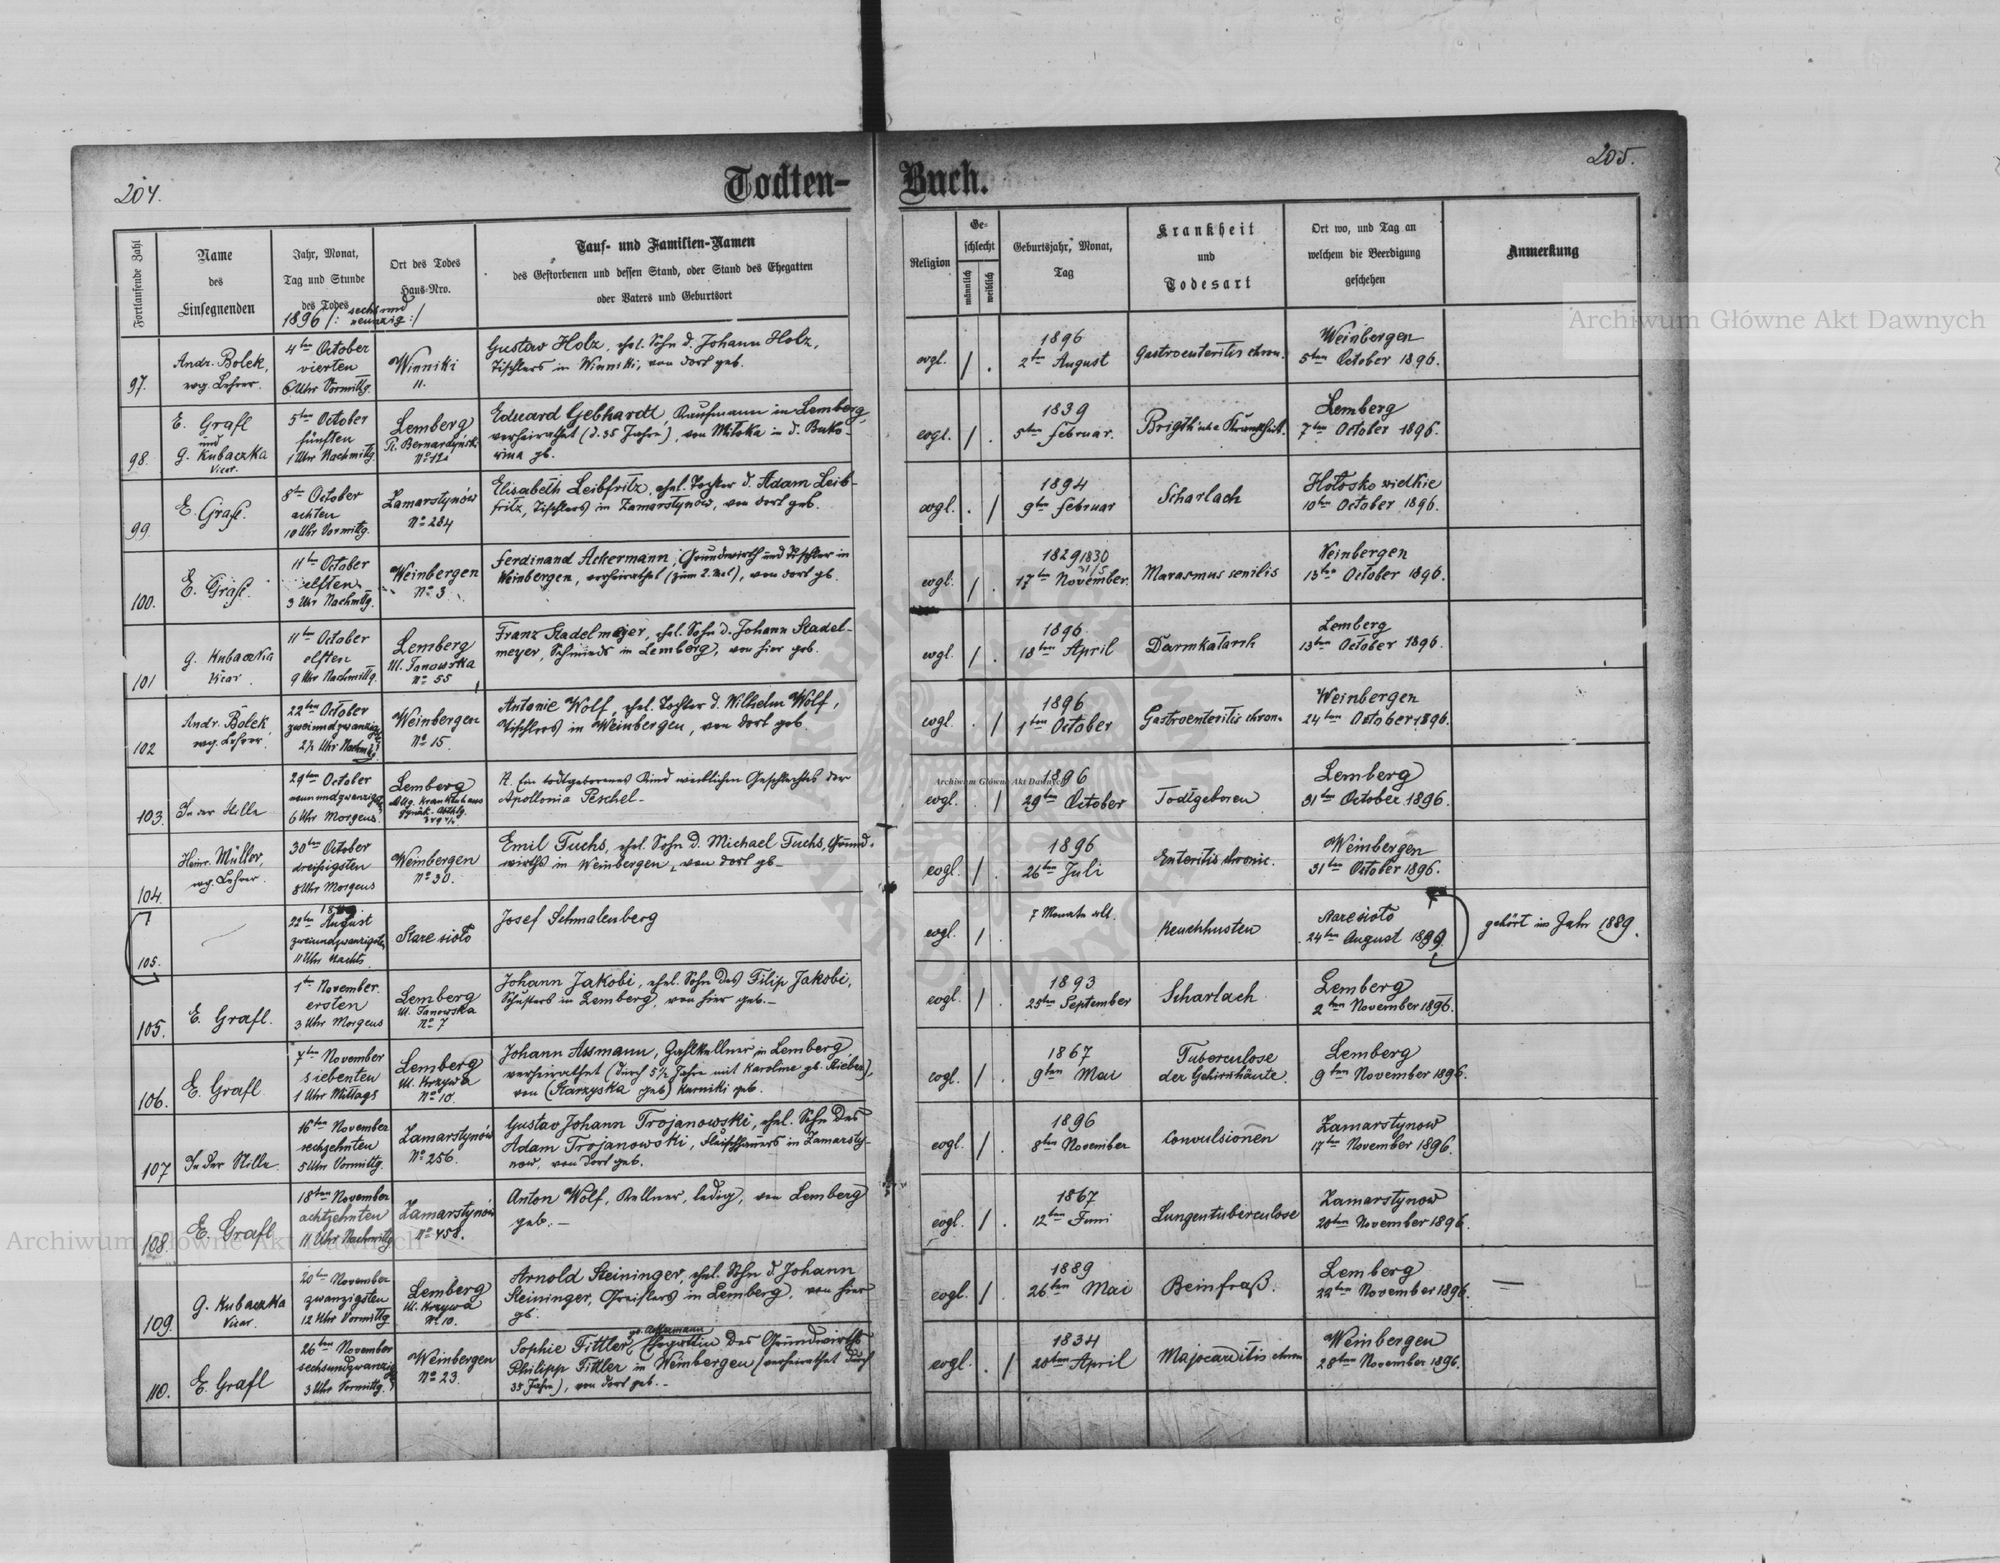 204.
Todten-
Buch.
205.
Fortlaufende Zahl
Name
des
Einsegnenden
Jahr, Monat,
Tag und Stunde
des Todes
1896 /: sechsund
neunzig :/
Ort des Todes
Haus-Nro.
Tauf- und Familien-Namen
des Gestorbenen und dessen Stand, oder Stand des Ehegatten
oder Vaters und Geburtsort
Religion
Ge-
schlecht
männlich
weiblich
Geburtsjahr, Monat,
Tag
Krankheit
und
Todesart
Ort wo, und Tag an
welchem die Beerdigung
geschehen
Anmerkung
97.
Andr. Bolek,
evg. Lehrer.
4ten October
vierten
6 Uhr Vormittg.
Winniki
11.
Gustav Holz, ehel. Sohn d. Johann Holz,
Tischlers in Winniki, von dort geb.
evgl. / .
1896
2ten August
Gastroenteritis chron.
Weinbergen
5ten October 1896.
98.
E. Grafl
und
G. Kubaczka
Vicar.
5ten October
fünften
1 Uhr Nachmittg.
Lemberg
Pl. Bernardyński
No 12a
Eduard Gebhardt, Kaufmann in Lemberg,
verheirathet (d. 35 Jahre), von Mitoka in d. Buko-
wina gb.
evgl. / .
1839
5ten Februar.
Brigth'sche Krankheit.
Lemberg
7ten October 1896.
99.
E. Grafl.
8ten October
achten
10 Uhr Vormittg.
Zamarstynów
No 284
Elisabeth Leibfritz, ehel. Tochter d. Adam Leib-
fritz, Tischlers in Zamarstynow, von dort geb.
evgl. . /
1894
9ten Februar
Scharlach
Hołosko wielkie
10ten October 1896.
100.
E. Grafl.
11ten October
elften
3 Uhr Nachmittg.
Weinbergen
No 3
Ferdinand Ackermann, Grundwirth und Tischler in
Weinbergen, verheirathet (zum 2. mal), von dort gb.
evgl. / .
1829 1830
31/5
17ten November.
Marasmus senilis
Weinbergen
13ten October 1896.
101
G. Kubaczka
Vicar
11ten October
elften
9 Uhr Nachmittg.
Lemberg
Ul. Janowska
No 55
Franz Stadelmeyer, ehel. Sohn d. Johann Stadel-
meyer, Schmieds in Lemberg, von hier geb.
evgl. / .
1896
18ten April
Darmkatarrh
Lemberg
13ten October 1896.
102
Andr. Bolek
evg. Lehrer
22ten October
zweiundzwanzigsten
2½ Uhr Nachmittg.
Weinbergen
No 15.
Antonie Wolf, ehel. Tochter d. Wilhelm Wolf,
Tischlers in Weinbergen, von dort geb.
evgl. . /
1896
1ten October
Gastroenteritis chron.
Weinbergen
24ten October 1896.
103.
In der Stille
29ten October
neunundzwanzigsten
6 Uhr Morgens
Lemberg
Allg. Krankenhaus
Ein todtgeborenes Kind weiblichen Geschlechts der
Apollonia Peschel.-
evgl. . /
1896
29ten October
Todtgeboren
Lemberg
31ten October 1896.
104.
Heinr. Müller,
evg. Lehrer.
30ten October
dreißigsten
8 Uhr Morgens
Weinbergen
No 30.
Emil Fuchs, ehel. Sohn d. Michael Fuchs, Grund-
wirths in Weinbergen, von dort gb.
evgl. / .
1896
26ten Juli
Enteritis chronic.
Weinbergen
31ten October 1896.
105.
22ten August
zweiundzwanzigsten
11 Uhr Nachts
Stare sioło
Josef Schmalenberg
evgl. / .
7 Monate alt.
Keuchhusten
Stare sioło
24ten August 1889.
gehört ins Jahr 1889.
105.
E. Grafl.
1ten November
ersten
3 Uhr Morgens
Lemberg
Ul. Janowska
No 7
Johann Jakobi, ehel. Sohn des Filip Jakobi,
Schusters in Lemberg, von hier geb.-
evgl. / .
1893
25ten September
Scharlach
Lemberg
2ten November 1896.
106.
E. Grafl
7ten November
siebenten
1 Uhr Mittags
Lemberg
Ul. Krzywa
No 10.
Johann Assmann, Zahlkellner in Lemberg
verheirathet (durch 5½ Jahre mit Karoline gb. Rieber),
von (Starzyska geb) Kurniki geb.
evgl. / .
1867
9ten Mai
Tuberculose
der Gehirnhäute.
Lemberg
9ten November 1896.
107
In der Stille.
16ten November
sechzehnten
5 Uhr Vormittg.
Zamarstynów
No 256.
Gustav Johann Trojanowski, ehel. Sohn des
Adam Trojanowski, Fleischhauers in Zamarsty-
now, von dort geb.
evgl. / .
1896
8ten November
Convulsionen
Zamarstynow
17ten November 1896.
108.
E. Grafl
18ten November
achtzehnten
11 Uhr Nachmittg.
Zamarstynów
No 458.
Anton Wolf, Kellner, ledig, von Lemberg
geb.-
evgl. / .
1867
12ten Juni
Lungentuberculose
Zamarstynow
20ten November 1896.
109.
G. Kubaczka
Vicar.
20ten November
zwanzigsten
12 Uhr Vormittg.
Lemberg
Ul. Krzywa
No 10.
Arnold Steininger, ehel. Sohn d. Johann
Steininger, Greislers in Lemberg, von hier
gb.
evgl. / .
1889
26ten Mai
Beinfraß.
Lemberg
22ten November 1896.
110.
E. Grafl
26ten November
sechsundzwanzigsten
3 Uhr Vormittg.
Weinbergen
No 23.
gb. Ackermann
Sophie Fittler, Ehegattin des Grundwirths
Philipp Fittler in Weinbergen (verheirathet durch
35 Jahre), von dort geb.-
evgl. . /
1834
20ten April
Majocarditis chron
Weinbergen
28ten November 1896.
Archiwum Główne Akt Dawnych
Archiwum Główne Akt Dawnych
Archiwum Główne Akt Dawnych